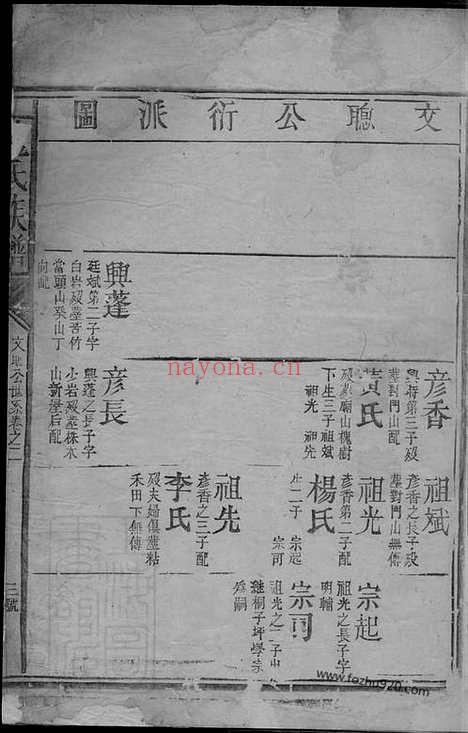 文聰公衍派圖
彥香
興蔣第三子歿
塟對門山配
黃氏
歿塟廟山槐樹
下生三子祖斌
祖光 祖先
祖斌
彥香之長子歿
塟對門山無傳
祖光
彥香第二子配
楊氏
生二子 宗起
宗司
宗起
祖光之長子字
明輔
宗司
祖光之二子出
継桐子坪學
為嗣
祖先
彥香之三子配
李氏
歿夫婦俱塟粘
禾田下無傳
興蓬
廷斌第二子字
白岩歿塟苦竹
當頭山癸山丁
向配
彥長
興蓬之長子字
小岩歿塟株木
山新屋后配
氏族譜
文聰公世系卷之二
三號
nayona.cn
www.fozhu920.com